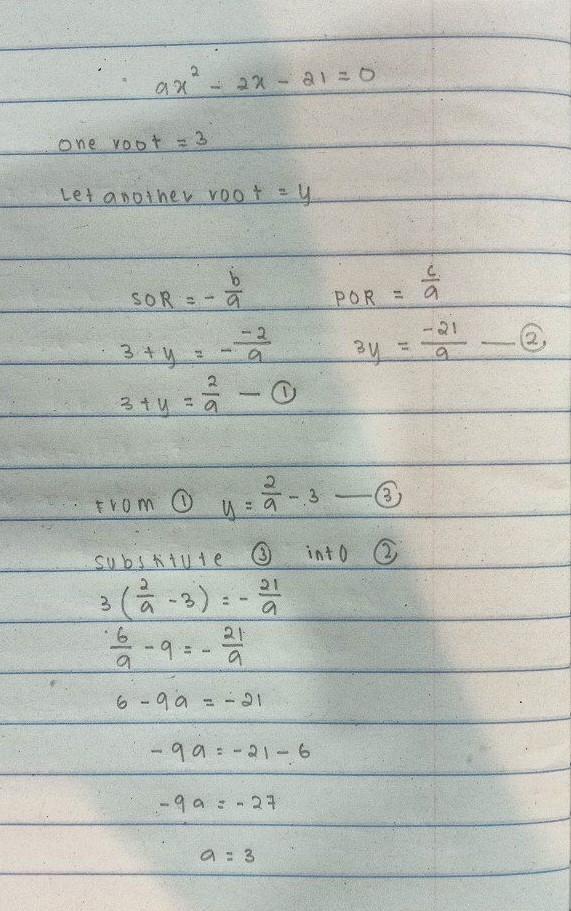 ax² - 2x - 21 = 0
one root = 3
Let another root = y
SOR = - b/a    POR = c/a
3 + y = - -2/a    3y = -21/a — ②
3 + y = 2/a — ①
From ① y = 2/a - 3 — ③
substitute ③ into ②
3 ( 2/a - 3 ) = - 21/a
6/a - 9 = - 21/a
6 - 9a = -21
-9a = -21 - 6
-9a = -27
a = 3